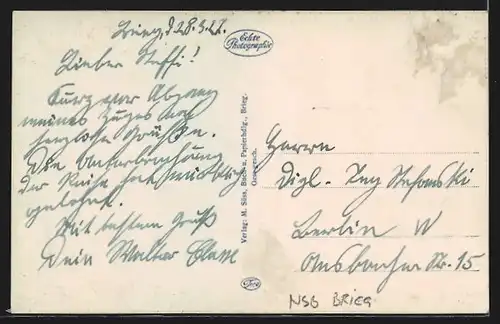 Brieg, d 28.3.22.
Lieber Steffi!
Kurz vor Abgang
meines Zuges noch
herzliche Grüße.
Die Unterbrechung
der Reise hat sich
gelohnt.
Mit bestem Gruß
Dein Walter
Echte Photographie
Verlag: M. Süss, Buch- u. Papierhdlg., Brieg.
Ges. gesch.
Herrn
Dipl.-Ing Stefanski
Berlin W
Ansbacher Str. 15
NSB BRIEG